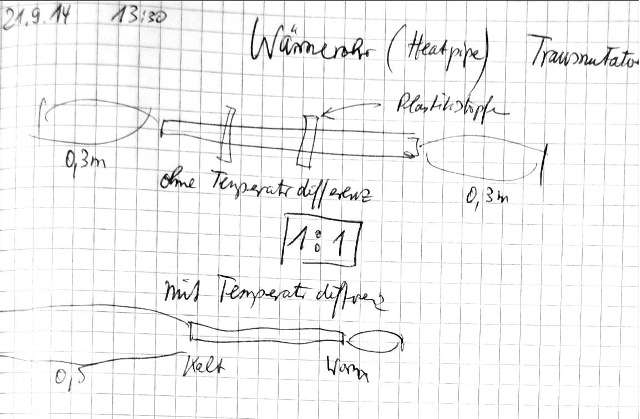 21.9.14 13:30
Wärmerohr (Heatpipe) Transmutator
Plastikstopfe
0,3m
ohne Temperaturdifferenz
0,3m
1:1
mit Temperaturdifferenz
Kalt
Warm
0,5